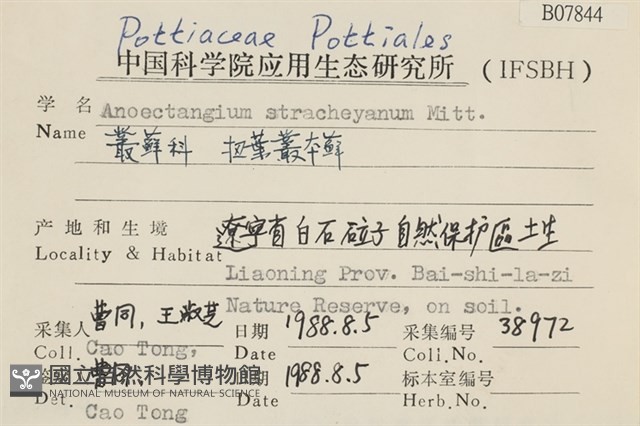 B07844
Pottiaceae Pottiales
中国科学院应用生态研究所 (IFSBH)
学名 Anoectangium stracheyanum Mitt.
Name 叢蘚科 扭葉叢本蘚
产地和生境 遼宁省白石砬子自然保护區土生
Locality & Habitat Liaoning Prov. Bai-shi-la-zi
Nature Reserve, on soil.
采集人 曹同, 王淑芝 日期 1988.8.5 采集编号 38972
Coll. Cao Tong, Date Coll.No.
曹同 期 1988.8.5 标本室编号
國立自然科學博物館
NATIONAL MUSEUM OF NATURAL SCIENCE
Det. Cao Tong Date Herb.No.